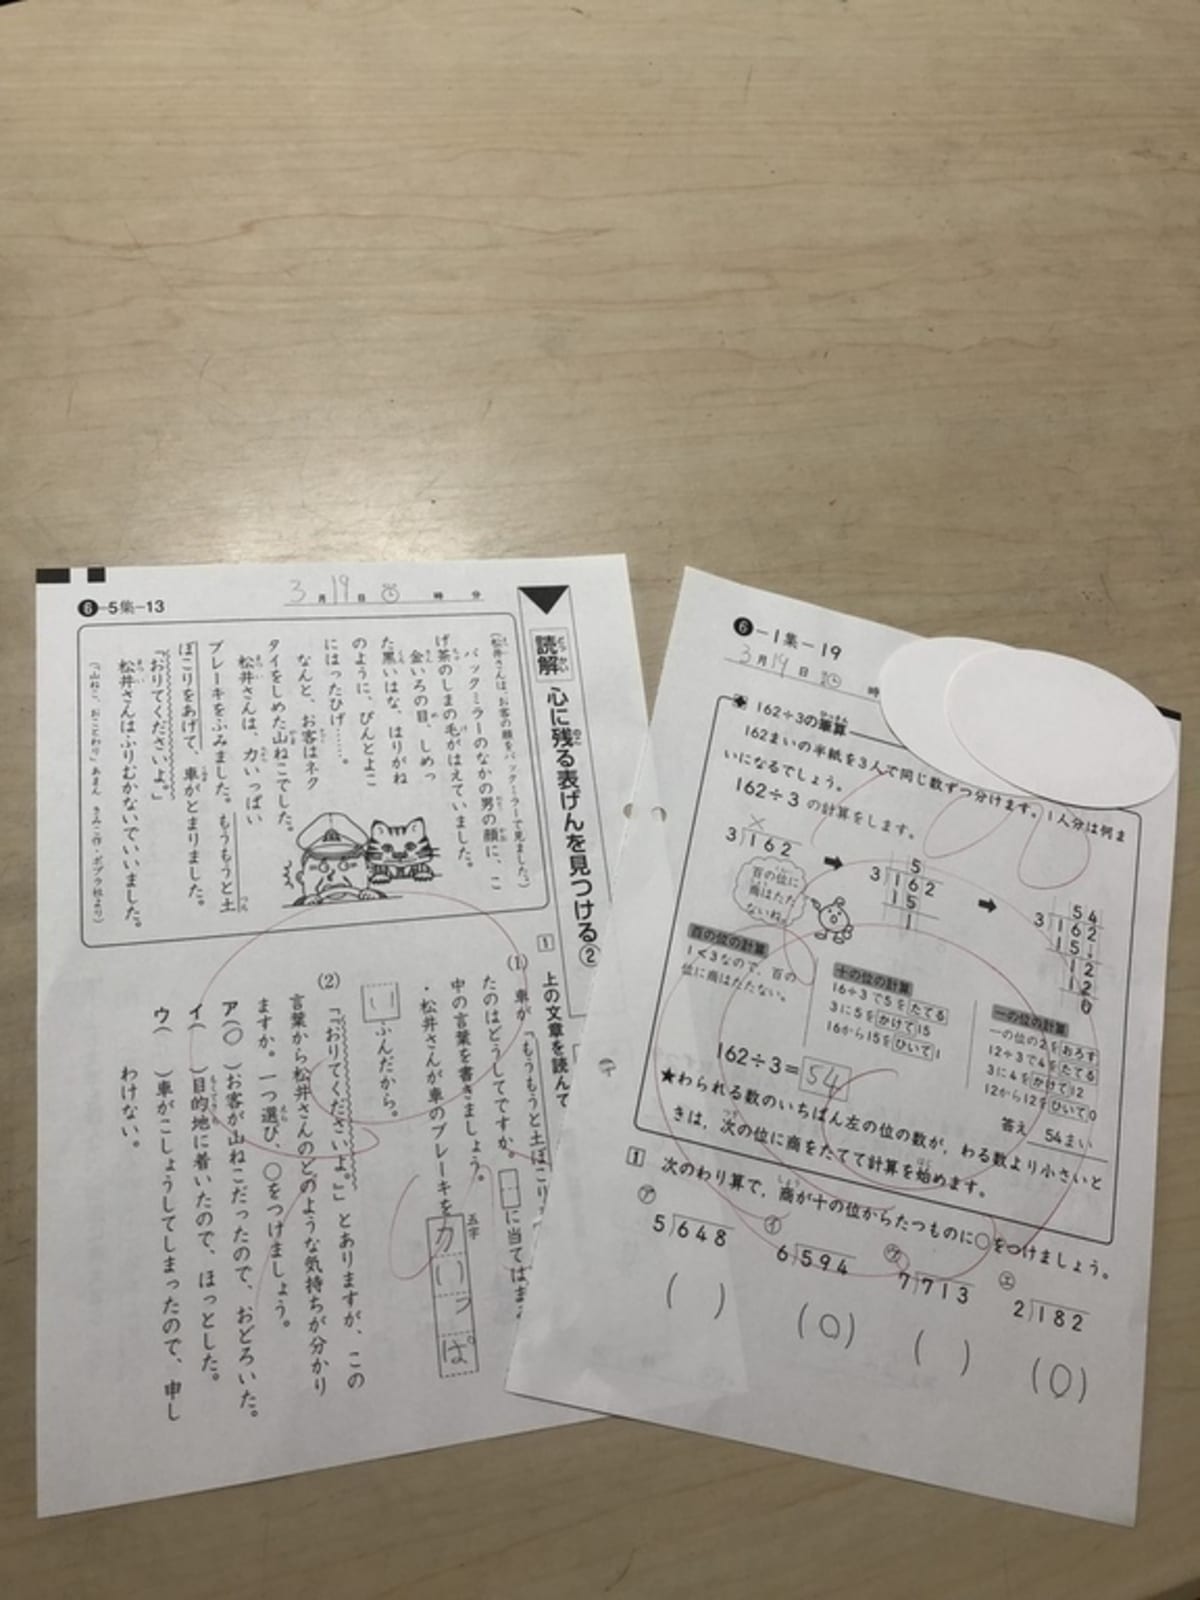 ❻-5集-13
3月19日 時 分
読解 心に残る表げんを見つける②
(松井さんは、お客の顔をバックミラーで見ました。)
バックミラーのなかの男の顔に、こ
げ茶のしまの毛がはえていました。
金いろの目、しめっ
た黒いはな、はりがね
のように、ぴんとよこ
にはったひげ……。
なんと、お客はネク
タイをしめた山ねこでした。
松井さんは、力いっぱい
ブレーキをふみました。もうもうと土
ぼこりをあげて、車がとまりました。
「おりてくださいよ。」
松井さんはふりむかないでいいました。
(『山ねこ、おことわり』あまん きみこ作・ポプラ社より)
1 上の文章を読んで
(1) 車が「もうもうと土ぼこり
たのはどうしてですか。□に当てはま
中の言葉を書きましょう。
・松井さんが車のブレーキを力いっぱ
五字
い ふんだから。
(2) 「『おりてくださいよ。』」とありますが、この
言葉から松井さんのどのような気持ちが分かり
ますか。一つ選び、○をつけましょう。
ア(○)お客が山ねこだったので、おどろいた。
イ( )目的地に着いたので、ほっとした。
ウ( )車がこしょうしてしまったので、申し
わけない。
❻-1集-19
3月19日 時
162÷3の筆算
162まいの半紙を3人で同じ数ずつ分けます。1人分は何ま
いになるでしょう。
162÷3の計算をします。
×
3)162
百の位に
商はたた
ないね。
5
3)162
15
1
54
3)162
15
12
12
0
百の位の計算
1<3なので、百の
位に商はたたない。
十の位の計算
16÷3で5をたてる
3に5をかけて15
16から15をひいて1
一の位の計算
一の位の2をおろす
12÷3で4をたてる
3に4をかけて12
12から12をひいて0
162÷3=54
答え 54まい
★わられる数のいちばん左の位の数が、わる数より小さいと
きは、次の位に商をたてて計算を始めます。
1 次のわり算で、商が十の位からたつものに○をつけましょう。
㋐ 5)648 ( )
㋑ 6)594 (○)
㋒ 7)713 ( )
㋓ 2)182 (○)